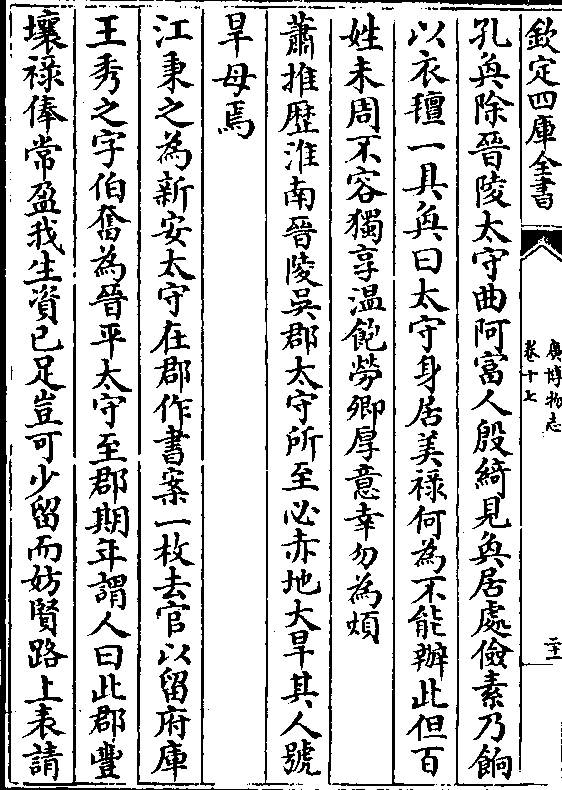 欽定四庫全書
廣博物志
卷十七
二十一
孔奐除晉陵太守曲阿富人殷綺見奐居處儉素乃餉
以衣氊一具奐曰太守身居美禄何為不能辦此但百
姓未周不容獨享温飽勞卿厚意幸勿為煩
蕭推歴淮南晉陵吳郡太守所至必赤地大旱其人號
旱母焉
江秉之為新安太守在郡作書案一枚去官以留府庫
王秀之字伯奮為晉平太守至郡期年謂人曰此郡豐
壤禄俸常盈我生資已足豈可少留而妨賢路上表請